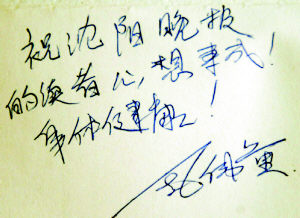 祝沈阳晚报
的读者心想事成!
身体健康!